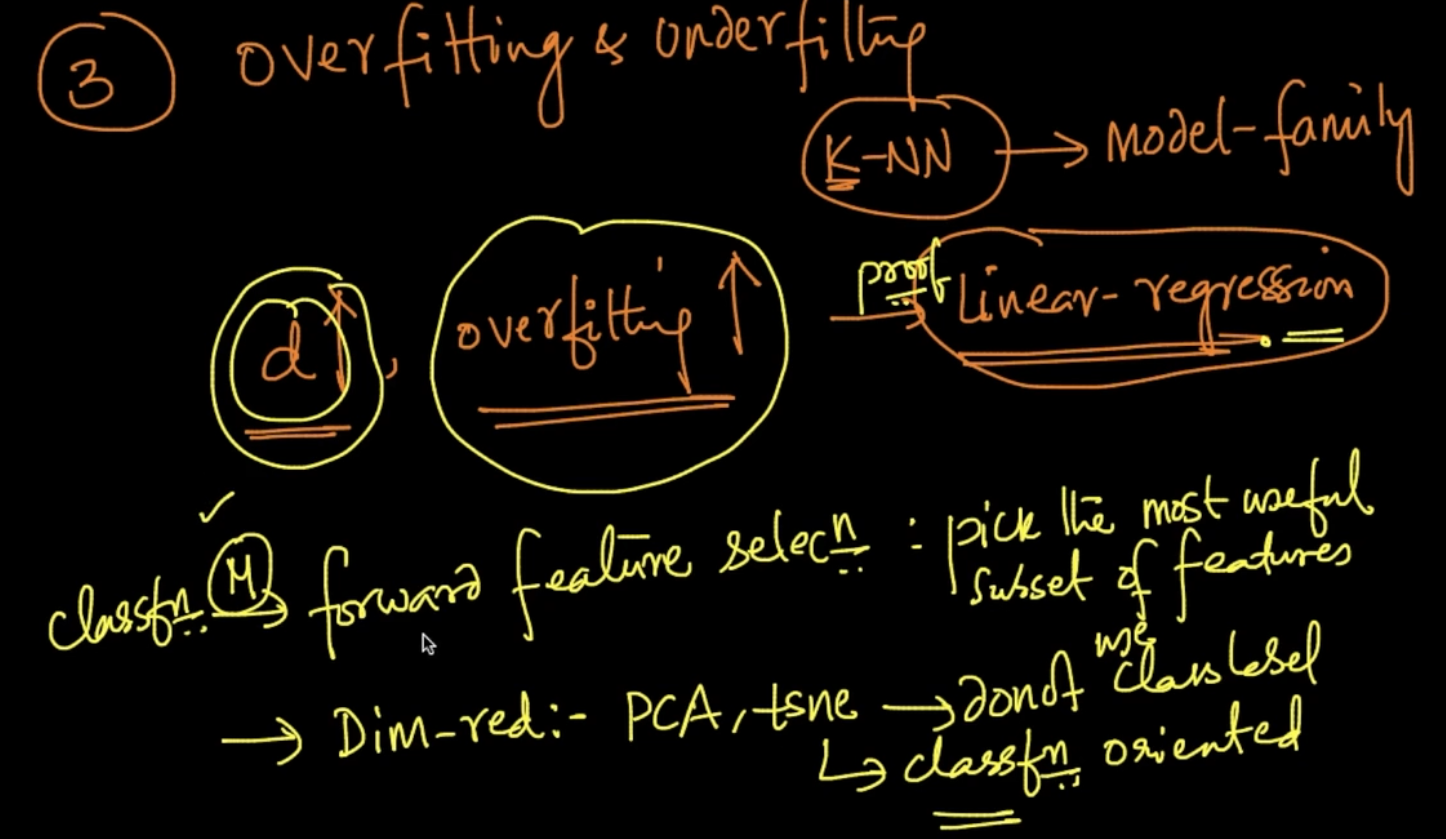 3 overfitting & underfitting
K-NN → Model-family
proof
d↑, overfitting ↑ → Linear-regression
✓
classfn. M → forward feature selecn : pick the most useful
subset of features
→ Dim-red:- PCA, tsne → donot use class label
↳ classfn. oriented